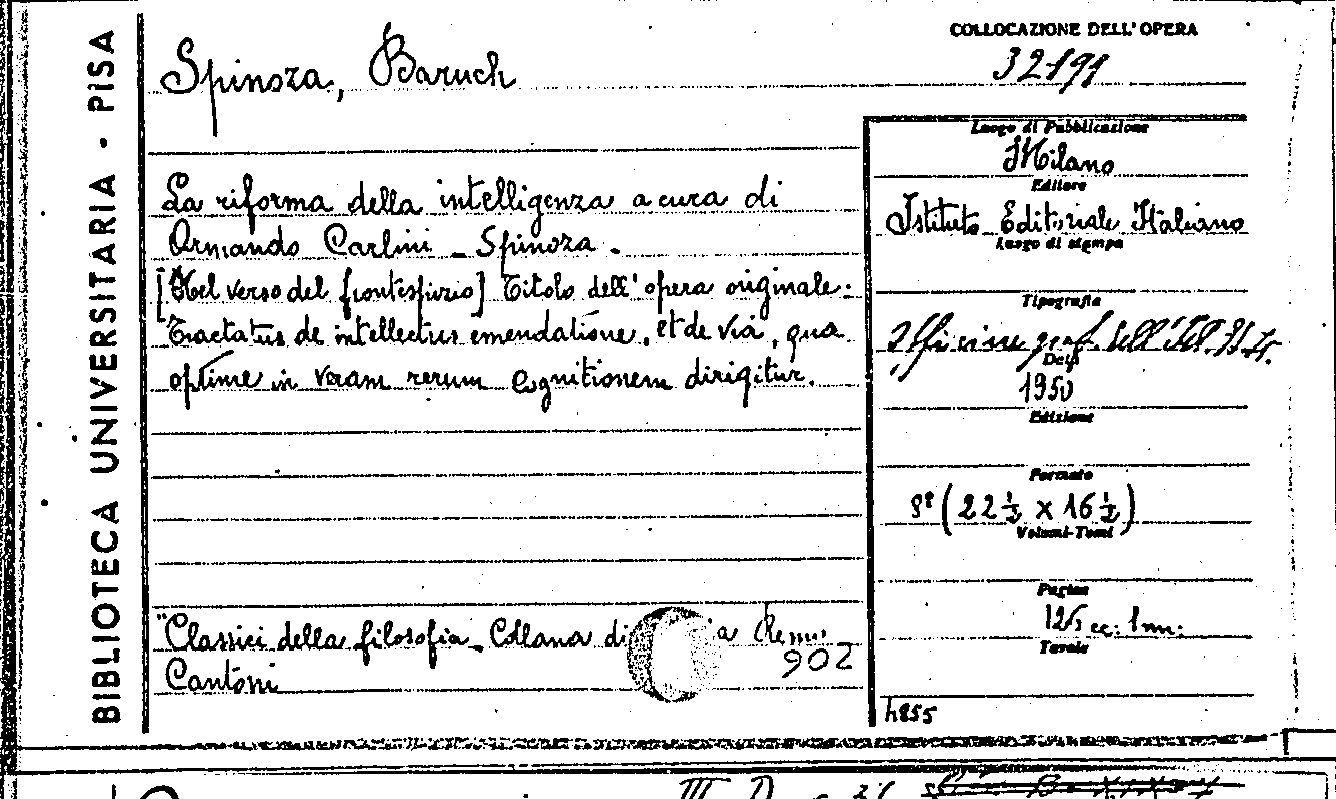 BIBLIOTECA UNIVERSITARIA • PISA
Spinoza, Baruch
La riforma della intelligenza a cura di
Armando Carlini - Spinoza.
[Nel verso del frontespizio] Titolo dell'opera originale:
Tractatus de intellectus emendatione, et de via, qua
optime in veram rerum cognitionem dirigitur.
"Classici della filosofia - Collana di
902
Cantoni
COLLOCAZIONE DELL'OPERA
Luogo di Pubblicazione
Milano
Editore
Istituto Editoriale Italiano
Luogo di stampa
Tipografia
Officine graf. dell'
Data
1950
Edizione
Formato
8° (22 ½ x 16 ½)
Volumi-Tomi
Pagine
Tavole
h855